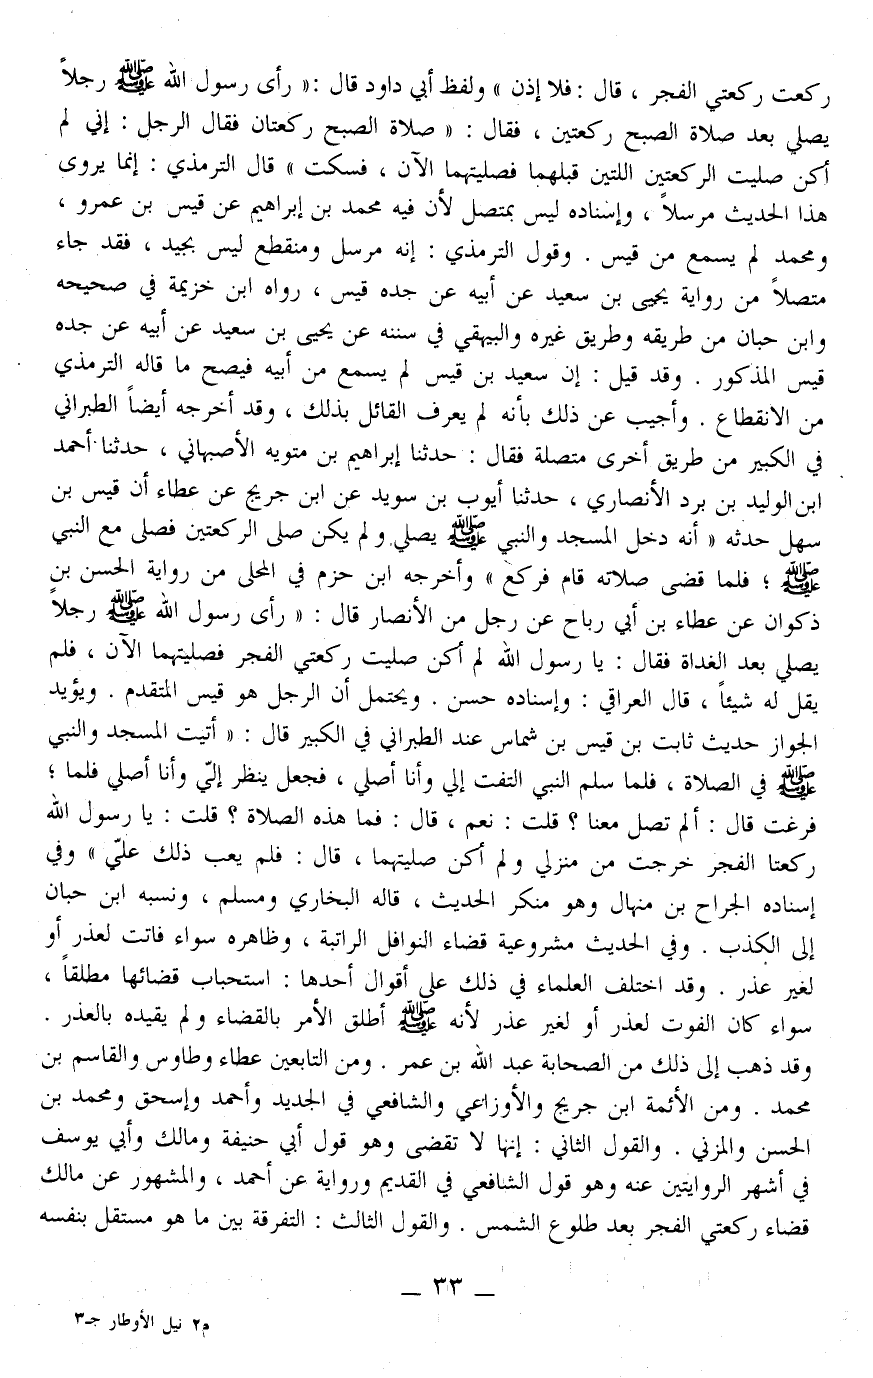 ركعت ركعتي الفجر ، قال : فلا إذن » ولفظ أبي داود قال : « رأى رسول الله ﷺ رجلاً
يصلي بعد صلاة الصبح ركعتين ، فقال : « صلاة الصبح ركعتان فقال الرجل : إني لم
أكن صليت الركعتين اللتين قبلهما فصليتهما الآن ، فسكت » قال الترمذي : إنما يروى
هذا الحديث مرسلاً ، وإسناده ليس بمتصل لأن فيه محمد بن إبراهيم عن قيس بن عمرو ،
ومحمد لم يسمع من قيس . وقول الترمذي : إنه مرسل ومنقطع ليس بجيد ، فقد جاء
متصلاً من رواية يحيى بن سعيد عن أبيه عن جده قيس ، رواه ابن خزيمة في صحيحه
وابن حبان من طريقه وطريق غيره والبيهقي في سننه عن يحيى بن سعيد عن أبيه عن جده
قيس المذكور . وقد قيل : إن سعيد بن قيس لم يسمع من أبيه فيصح ما قاله الترمذي
من الانقطاع . وأجيب عن ذلك بأنه لم يعرف القائل بذلك ، وقد أخرجه أيضاً الطبراني
في الكبير من طريق أخرى متصلة فقال : حدثنا إبراهيم بن متويه الأصبهاني ، حدثنا أحمد
ابن الوليد بن برد الأنصاري ، حدثنا أيوب بن سويد عن ابن جريج عن عطاء أن قيس بن
سهل حدثه « أنه دخل المسجد والنبي ﷺ يصلي ولم يكن صلى الركعتين فصلى مع النبي
ﷺ ؛ فلما قضى صلاته قام فركع » وأخرجه ابن حزم في المحلى من رواية الحسن بن
ذكوان عن عطاء بن أبي رباح عن رجل من الأنصار قال : « رأى رسول الله ﷺ رجلاً
يصلي بعد الغداة فقال : يا رسول الله لم أكن صليت ركعتي الفجر فصليتهما الآن ، فلم
يقل له شيئاً ، قال العراقي : وإسناده حسن . ويحتمل أن الرجل هو قيس المتقدم . ويؤيد
الجواز حديث ثابت بن قيس بن شماس عند الطبراني في الكبير قال : « أتيت المسجد والنبي
ﷺ في الصلاة ، فلما سلم النبي التفت إلي وأنا أصلي ، فجعل ينظر إليّ وأنا أصلي فلما ؛
فرغت قال : ألم تصل معنا ؟ قلت : نعم ، قال : فما هذه الصلاة ؟ قلت : يا رسول الله
ركعتا الفجر خرجت من منزلي ولم أكن صليتهما ، قال : فلم يعب ذلك عليّ » وفي
إسناده الجراح بن منهال وهو منكر الحديث ، قاله البخاري ومسلم ، ونسبه ابن حبان
إلى الكذب . وفي الحديث مشروعية قضاء النوافل الراتبة ، وظاهره سواء فاتت لعذر أو
لغير عذر . وقد اختلف العلماء في ذلك على أقوال أحدها : استحباب قضائها مطلقاً ،
سواء كان الفوت لعذر أو لغير عذر لأنه ﷺ أطلق الأمر بالقضاء ولم يقيده بالعذر .
وقد ذهب إلى ذلك من الصحابة عبد الله بن عمر . ومن التابعين عطاء وطاوس والقاسم بن
محمد . ومن الأئمة ابن جريج والأوزاعي والشافعي في الجديد وأحمد وإسحق ومحمد بن
الحسن والمزني . والقول الثاني : إنها لا تقضى وهو قول أبي حنيفة ومالك وأبي يوسف
في أشهر الروايتين عنه وهو قول الشافعي في القديم ورواية عن أحمد ، والمشهور عن مالك
قضاء ركعتي الفجر بعد طلوع الشمس . والقول الثالث : التفرقة بين ما هو مستقل بنفسه
— ٣٣ —
م٢ نيل الأوطار جـ٣